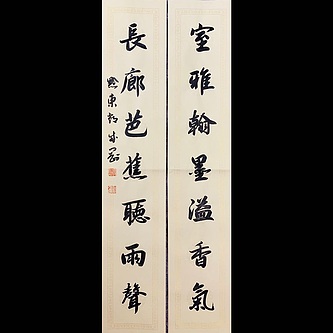 室雅翰墨溢香氣
長廊芭蕉聽雨聲